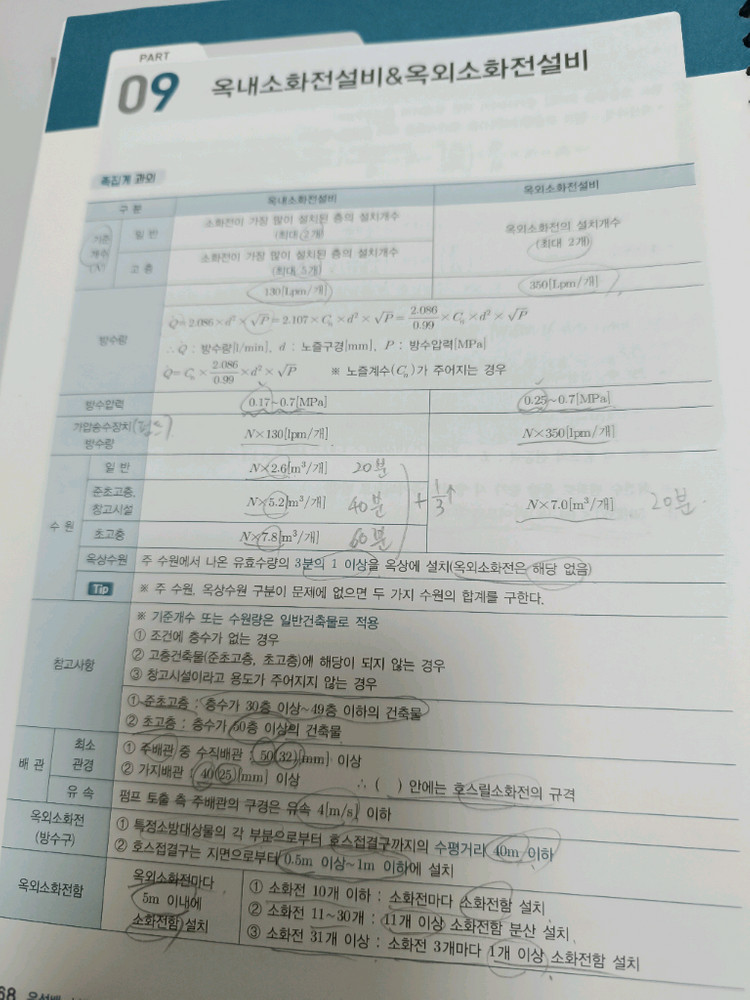 PART
09 옥내소화전설비&옥외소화전설비
족집게 과외
구 분 옥내소화전설비 옥외소화전설비
기준개수(N) 일 반 소화전이 가장 많이 설치된 층의 설치개수 (최대 2개) 옥외소화전의 설치개수 (최대 2개)
고 층 소화전이 가장 많이 설치된 층의 설치개수 (최대 5개)
130[Lpm/개] 350[Lpm/개]
방수량 Q=2.086×d²×√P=2.107×Cₙ×d²×√P=2.086/0.99×Cₙ×d²×√P
∴ Q : 방수량[l/min], d : 노즐구경[mm], P : 방수압력[MPa]
Q=Cₙ×2.086/0.99×d²×√P ※ 노즐계수(Cₙ)가 주어지는 경우
방수압력 0.17~0.7[MPa] 0.25~0.7[MPa]
가압송수장치(펌프) 방수량 N×130[lpm/개] N×350[lpm/개]
수 원 일 반 N×2.6[m³/개] 20분
준초고층, 창고시설 N×5.2[m³/개] 40분 + 1/3↑ N×7.0[m³/개] 20분.
초고층 N×7.8[m³/개] 60분
옥상수원 주 수원에서 나온 유효수량의 3분의 1 이상을 옥상에 설치(옥외소화전은 해당 없음)
Tip ※ 주 수원, 옥상수원 구분이 문제에 없으면 두 가지 수원의 합계를 구한다.
참고사항 ※ 기준개수 또는 수원량은 일반건축물로 적용
① 조건에 층수가 없는 경우
② 고층건축물(준초고층, 초고층)에 해당이 되지 않는 경우
③ 창고시설이라고 용도가 주어지지 않는 경우
① 준초고층 : 층수가 30층 이상~49층 이하의 건축물
② 초고층 : 층수가 50층 이상의 건축물
배 관 최소 관경 ① 주배관 중 수직배관 : 50(32)[mm] 이상
② 가지배관 : 40(25)[mm] 이상 ∴ ( ) 안에는 호스릴소화전의 규격
유 속 펌프 토출 측 주배관의 구경은 유속 4[m/s] 이하
옥외소화전 (방수구) ① 특정소방대상물의 각 부분으로부터 호스접결구까지의 수평거리 40m 이하
② 호스접결구는 지면으로부터 0.5m 이상~1m 이하에 설치
옥외소화전함 옥외소화전마다 5m 이내에 소화전함 설치 ① 소화전 10개 이하 : 소화전마다 소화전함 설치
② 소화전 11~30개 : 11개 이상 소화전함 분산 설치
③ 소화전 31개 이상 : 소화전 3개마다 1개 이상 소화전함 설치
68